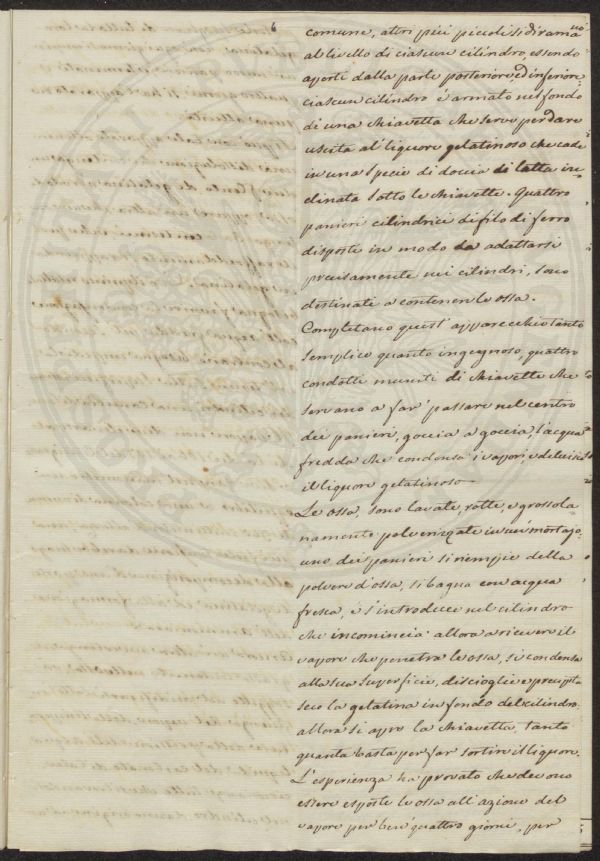 6
comune, altri più piccoli si diramano
al livello di ciascun cilindro, essendo
aperti dalla parte posteriore, ed inferiore
ciascun cilindro é armato nel fondo
di una chiavetta che serve per dare
uscita al liquore gelatinoso che cade
in una specie di doccia di latta in-
clinata sotto le chiavette. Quattro
panieri cilindrici di filo di ferro
disposti in modo da adattarsi
precisamente nei cilindri, sono
destinati a contenere le ossa.
Completano quest' apparecchio tanto
semplice quanto ingegnoso, quattro
condotti muniti di chiavette che
servano a far' passare nel centro
dei panieri, goccia a goccia, l'acqua
fredda che condensa i vapori, e
il liquore gelatinoso
Le ossa, sono lavate, rotte, e grossola
namente polverizzate in un' mortajo,
uno dei panieri si riempie della
polvere d'ossa, si bagna con acqua
fresca, e s'introduce nel cilindro
che incomincia allora a ricevere il
vapore che penetra le ossa, si condensa
alla sua superficie, discioglie e precipita
seco la gelatina in fondo del cilindro.
allora si apre la chiavetta, tanto
quanta basta per far' sortire il liquore.
L'esperienza ha provato che devono
essere esposte le ossa all'azione del
vapore per ben' quattro giorni, per